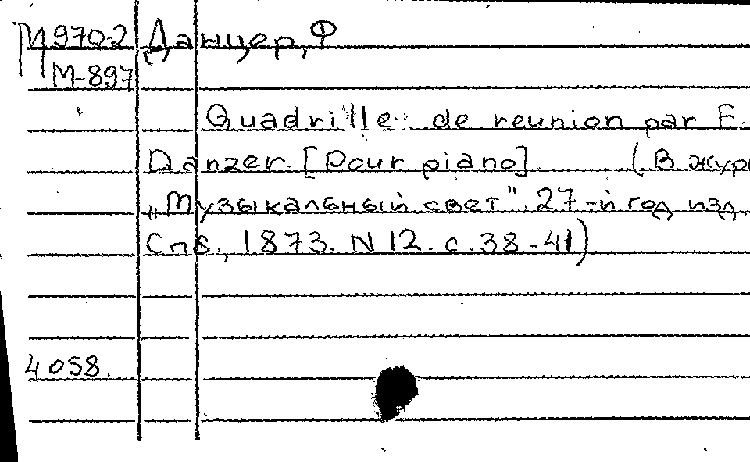 М970-2 Данцер, Ф
М-897
Quadrille de reunion par F.
Danzer. [Pour piano]. (В жур
„Музыкальный свет". 27-й год изд.
Спб., 1873. N 12. с. 38-41)
4058.